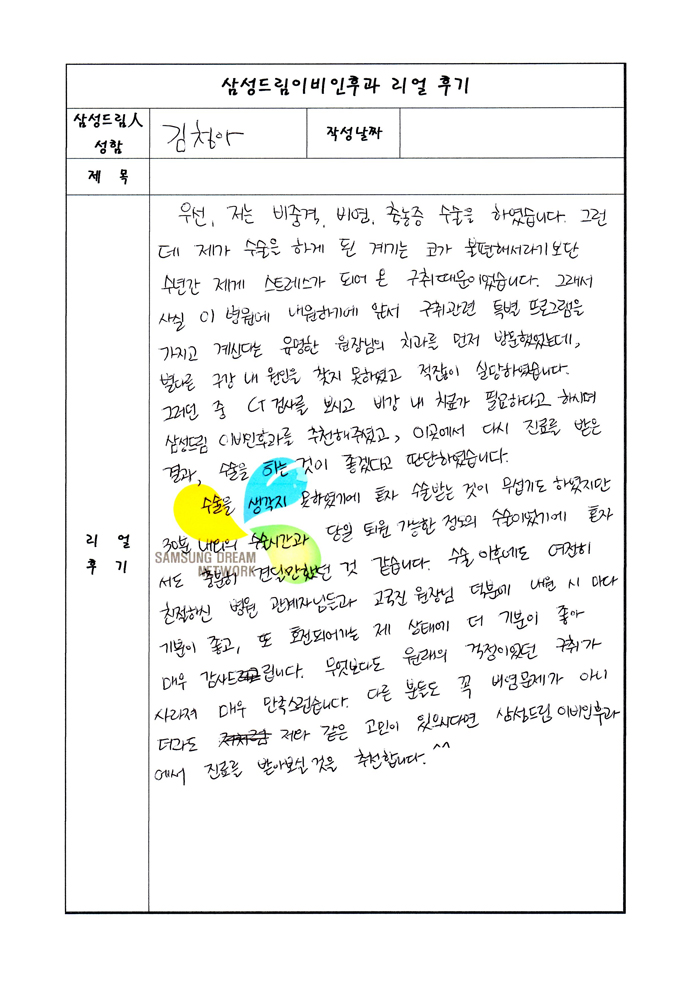 삼성드림이비인후과 리얼 후기
삼성드림人 성함
김청아
작성날짜
제 목
리 얼 후 기
우선, 저는 비중격, 비염, 축농증 수술을 하였습니다. 그런
데 제가 수술을 하게 된 계기는 코가 불편해서라기보단
수년간 제게 스트레스가 되어 온 구취때문이었습니다. 그래서
사실 이 병원에 내원하기에 앞서 구취관련 특별 프로그램을
가지고 계신다는 유명한 원장님의 치과를 먼저 방문했었는데,
별다른 구강 내 원인을 찾지 못하였고 적잖이 실망하였습니다.
그러던 중 CT검사를 보시고 비강 내 치료가 필요하다고 하시며
삼성드림 이비인후과를 추천해주셨고, 이곳에서 다시 진료를 받은
결과, 수술을 하는 것이 좋겠다고 판단하였습니다.
수술을 생각지 못하였기에 혼자 수술받는 것이 무섭기도 하였지만
30분 내외의 수술시간과 당일 퇴원 가능한 정도의 수술이었기에 혼자
서도 충분히 견딜만했던 것 같습니다. 수술 이후에도 여전히
친절하신 병원 관계자님들과 고국진 원장님 덕분에 내원 시 마다
기분이 좋고, 또 호전되어가는 제 상태에 더 기분이 좋아
매우 감사드립니다. 무엇보다도 원래의 걱정이었던 구취가
사라져 매우 만족스럽습니다. 다른 분들도 꼭 비염문제가 아니
더라도 저와 같은 고민이 있으시다면 삼성드림 이비인후과
에서 진료를 받아보실 것을 추천합니다.^^
SAMSUNG DREAM
NETWORK